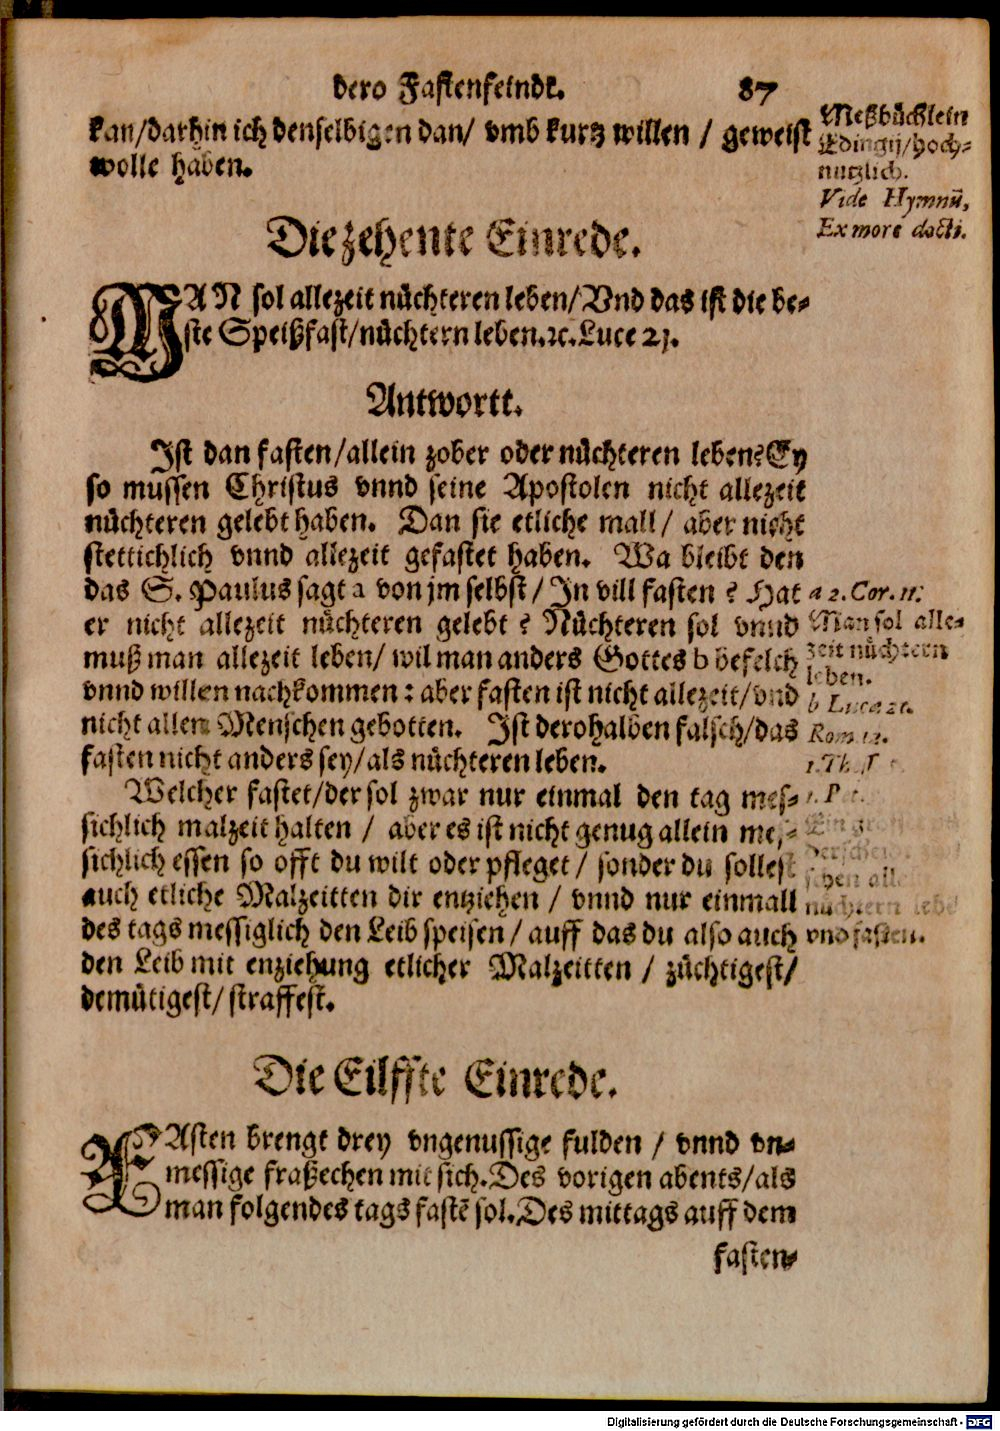 dero Fastenfeindt. 87
kan/darhin ich denselbigen dan/ vmb kurtz willen / geweist
wolle haben.
Meßbüchlein
Edingij/hoch-
nutzlich.
Vide Hymnũ,
Ex more docti.
Die zehente Einrede.
MAN sol allezeit nüchteren leben/Vnd das ist die be-
ste Speißfast/nüchtern leben.ꝛc.Luce 21.
Antwortt.
Ist dan fasten/allein zober oder nüchteren leben?Ey
so mussen Christus vnnd seine Apostolen nicht allezeit
nüchteren gelebt haben. Dan sie etliche mall/ aber nicht
stettichlich vnnd allezeit gefastet haben. Wa bleibt den
das S. Paulus sagt a von jm selbst/ In vill fasten ? Hat
er nicht allezeit nüchteren gelebt ? Nüchteren sol vnnd
muß man allezeit leben/ wil man anders Gottes b befelch
vnnd willen nachkommen : aber fasten ist nicht allezeit/vnd
nicht allen Menschen gebotten. Ist derohalben falsch/das
fasten nicht anders sey/als nüchteren leben.
a 2. Cor. 11.
Man sol alle-
zeit nüchtern
leben.
b Luca 21.
Rom 12.
Welcher fastet/der sol zwar nur einmal den tag mes-
sichlich malzeit halten / aber es ist nicht genug allein mes-
sichlich essen so offt du wilt oder pfleget/ sonder du sollest
auch etliche Malzeitten dir entziehen / vnnd nur einmall
des tags messiglich den Leib speisen/ auff das du also auch
den Leib mit enziehung etlicher Malzeitten / züchtigest/
demütigest/ straffest.
vnd fasten.
Die Eilffte Einrede.
FAsten brengt drey vngenussige fulden / vnnd vn-
messige fraßechen mit sich.Des vorigen abents/als
man folgendes tags fastẽ sol.Des mittags auff dem
fasten-
Digitalisierung gefördert durch die Deutsche Forschungsgemeinschaft - DFG